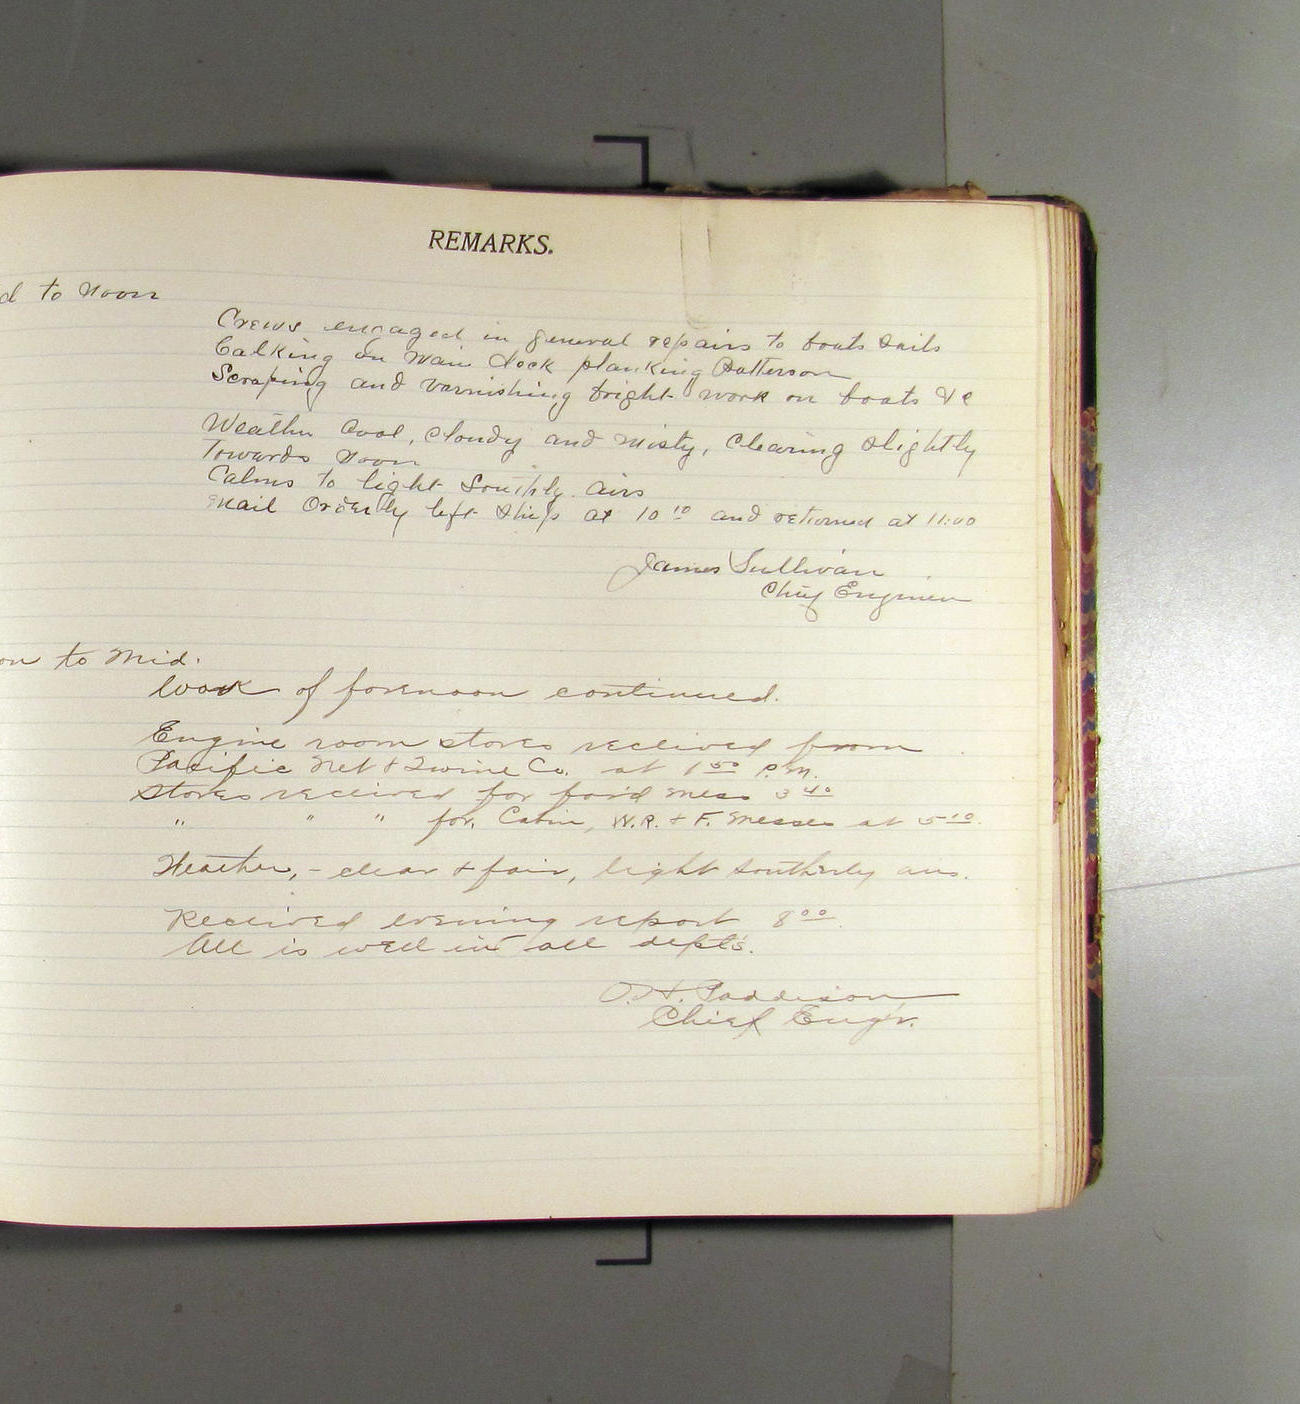 REMARKS.
d to Noon
Crews engaged in general repairs to boats sails
Calking on Main deck planking Patterson
Scraping and varnishing bright work on boats &c
Weather Cool, Cloudy and Misty, Clearing slightly
Towards Noon
Calms to light South'ly airs
Mail Orderly left ship at 10 10 and returned at 11:00
James Sullivan
Chief Engineer
on to Mid.
Work of forenoon continued.
Engine room stores received from
Pacific Net & Twine Co. at 1 50 P.M.
Stores received for for'd mess 3 40
" " " for Cabin, W.R. & F. Messes at 5 10.
Weather, - clear & fair, light southerly airs.
Received evening report 8 00
All is well in all dept's.
O. H. Paddison
Chief Eng'r.